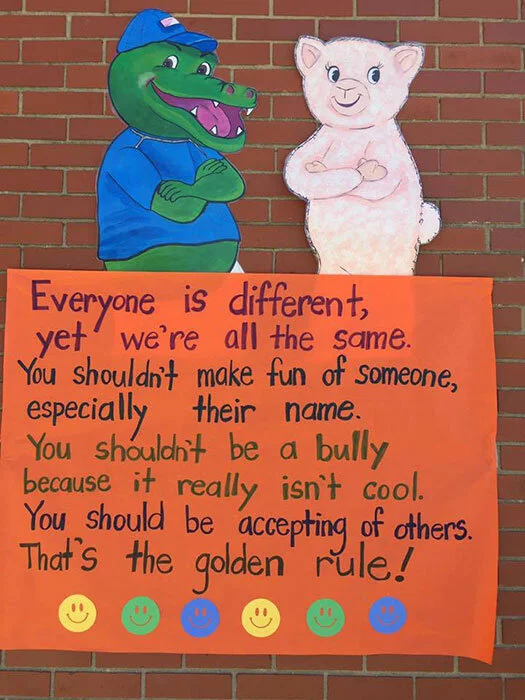 Everyone is different,
yet we're all the same.
You shouldn't make fun of someone,
especially their name.
You shouldn't be a bully
because it really isn't cool.
You should be accepting of others.
That's the golden rule!